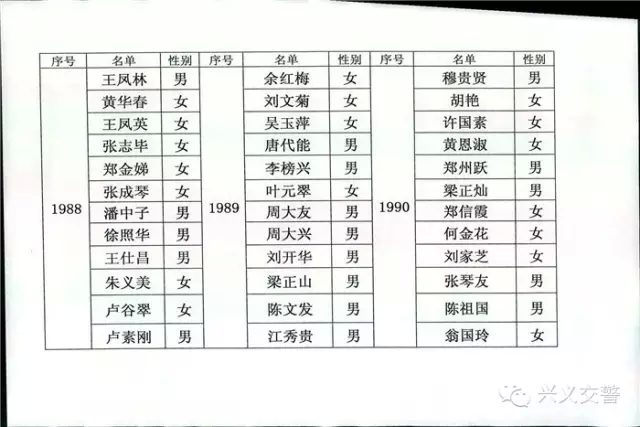 序号 名单 性别 序号 名单 性别 序号 名单 性别
王凤林 男 余红梅 女 穆贵贤 男
黄华春 女 刘文菊 女 胡艳 女
王凤英 女 吴玉萍 女 许国素 女
张志毕 女 唐代能 男 黄恩淑 女
郑金娣 女 李榜兴 男 郑州跃 男
张成琴 女 叶元翠 女 梁正灿 男
1988 潘中子 男 1989 周大友 男 1990 郑信霞 女
徐照华 男 周大兴 男 何金花 女
王仕昌 男 刘开华 男 刘家芝 女
朱义美 女 梁正山 男 张琴友 男
卢谷翠 女 陈文发 男 陈祖国 男
卢素刚 男 江秀贵 男 翁国玲 女
兴义交警